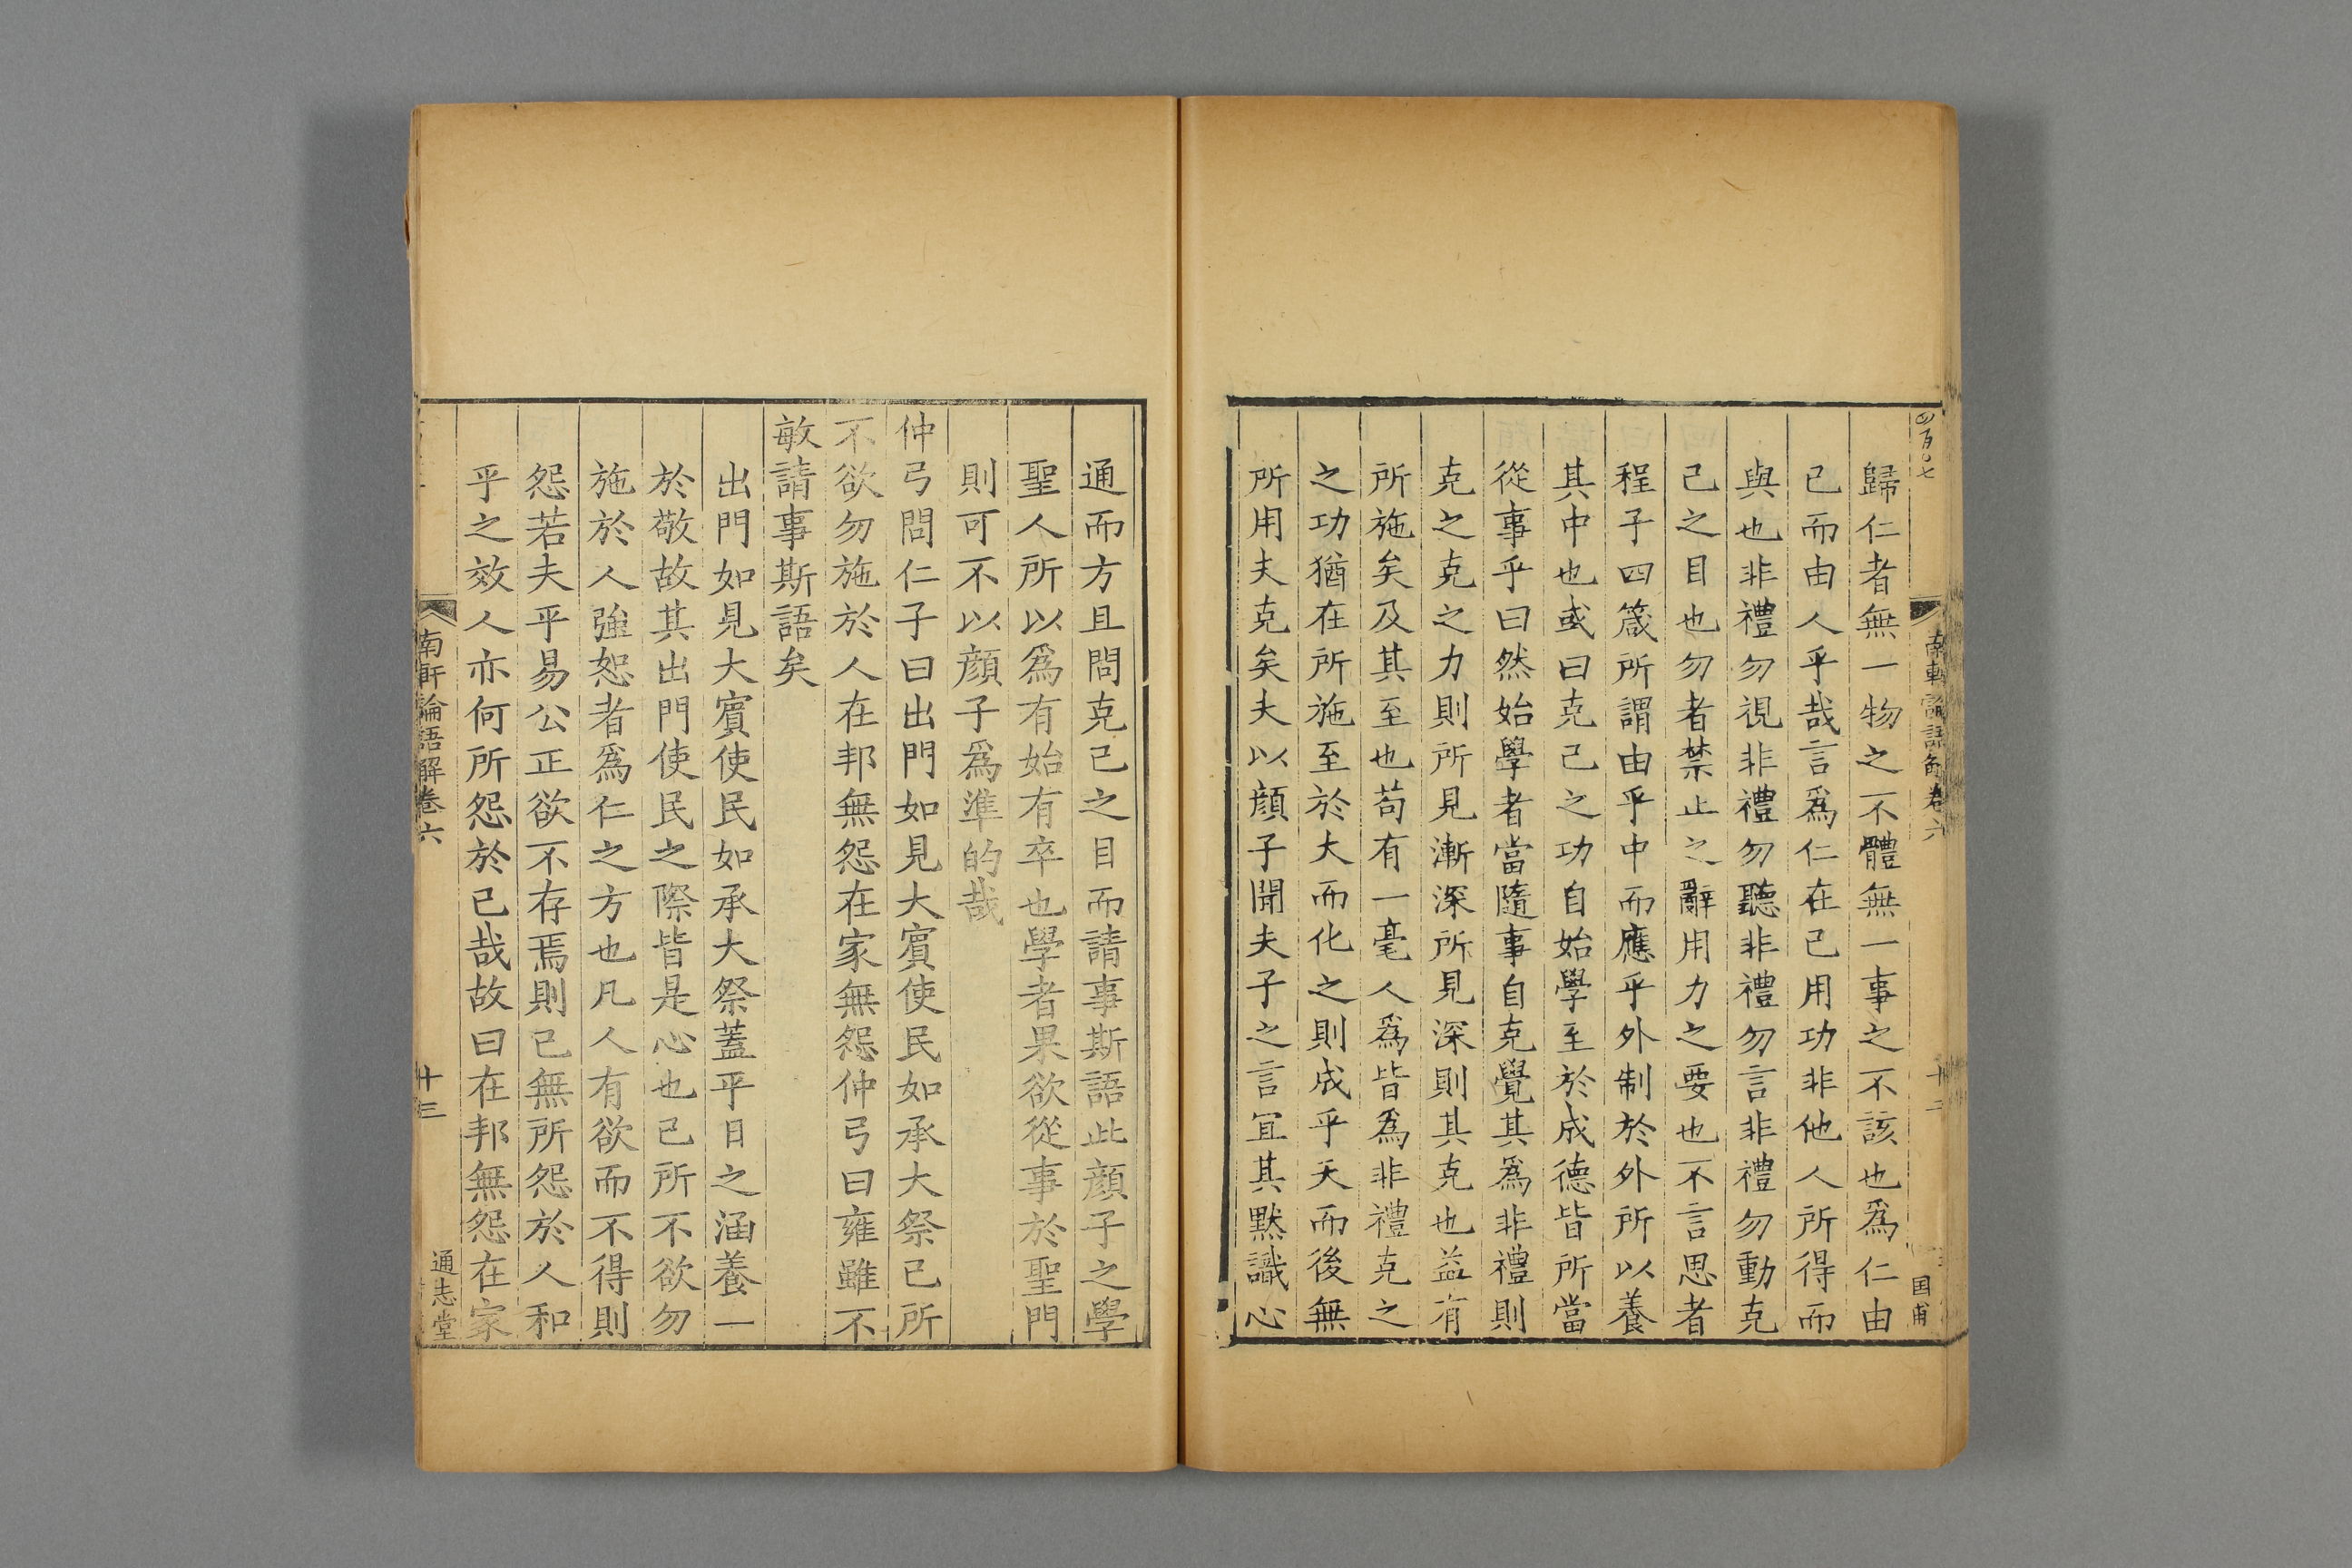 四百〇七
南軒論語解卷六
十二
国甫
歸仁者無一物之不體無一事之不該也爲仁由
已而由人乎哉言爲仁在已用功非他人所得而
與也非禮勿視非禮勿聽非禮勿言非禮勿動克
己之目也勿者禁止之辭用力之要也不言思者
程子四箴所謂由乎中而應乎外制於外所以養
其中也或曰克己之功自始學至於成德皆所當
從事乎曰然始學者當隨事自克覺其爲非禮則
克之克之力則所見漸深所見深則其克也益有
所施矣及其至也苟有一毫人爲皆爲非禮克之
之功猶在所施至於大而化之則成乎天而後無
所用夫克矣夫以顔子聞夫子之言宜其默識心
通而方且問克己之目而請事斯語此顔子之學
聖人所以爲有始有卒也學者果欲從事於聖門
則可不以顔子爲準的哉
仲弓問仁子曰出門如見大賓使民如承大祭己所
不欲勿施於人在邦無怨在家無怨仲弓曰雍雖不
敏請事斯語矣
出門如見大賓使民如承大祭蓋平日之涵養一
於敬故其出門使民之際皆是心也己所不欲勿
施於人強恕者爲仁之方也凡人有欲而不得則
怨若夫平易公正欲不存焉則已無所怨於人和
乎之效人亦何所怨於已哉故曰在邦無怨在家
南軒論語解卷六
十三
通志堂